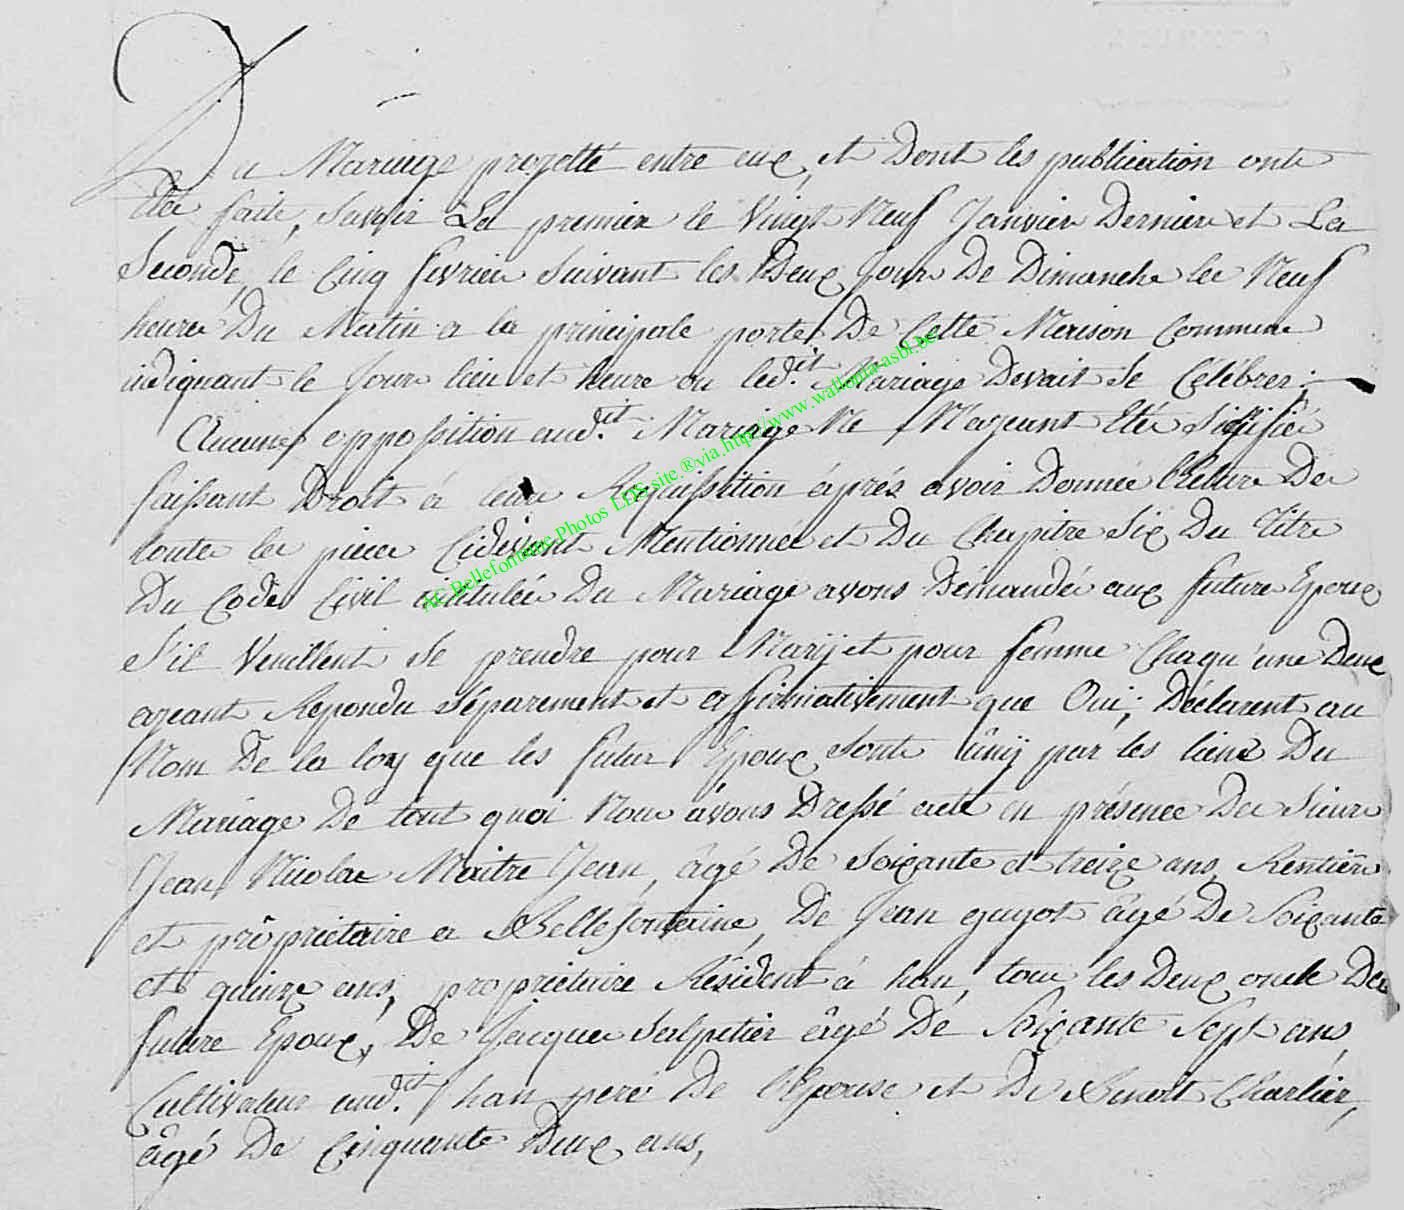 Du Mariage projetté entre eux, et Dont les publication onte
Eté faite, Savoir La premier le Vingt Neuf Janvier Dernier et La
Seconde, le Cinq fevrier Suivant les Deux Jour De Dimanche les Neuf
heure Du Matin a la principale porte De Cette Maison Commune
indiquant le Jour lieu et heure ou led.it Mariage Devait Se Célébrer;
Aucunes opposition aud.it Mariage Ne N'ayeant Eté Sinifiée
faissant Droit á leur Requissition áprés avoir Donnée Lecture De
toute les piece Cidevant Mentionnée et Du Chapitre Six Du Titre
Du Code Civil intitulée Du Mariage avons Démandée aux future Epoux
S'il Veuillent Se prendre pour Marij et pour femme Chaqu'une Deux
ayeant Repondu Séparement et affirmativement que Oui; Déclarent au
Nom De la loy que les futur Epoux Sont ûnij par les liens Du
Mariage De tout quoi Nous ávons Dressé acte en présence Du Sieur
Jean Nicolas Maitre Jean, âgé De Soixante et treize ans, Rentier
et prôpriétaire a Bellefontaine, De Jean guyot âgé De Soixante
et quinze ans, propriétaire Résident á han, tous les Deux oncle Des
future Epoux, De Jacques Salpetier âgé De Soixante Sept ans,
Cultivateur aud.it han pere De l'Epouse et De Benoit Charlier,
âgé De Cinquante Deux ans,
AC Bellefontaine Photos LDS site ® via http://www.wallonia-asbl.be